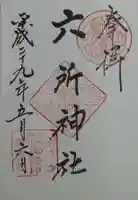 奉拝
六所神社
平成二十九年五月六日